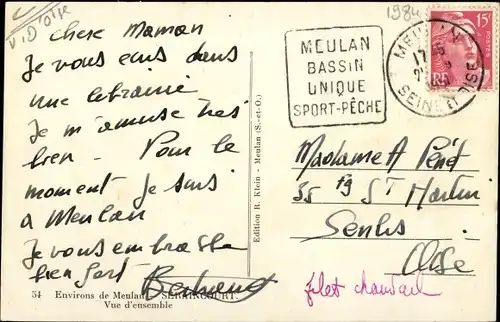 V.D'Oise
Chere Maman
Je vous ecris dans
une librairie
Je m'amuse tres
bien. Pour le
moment Je suis
a Meulan
Je vous embrasse
bien fort Bertrand
54 Environs de Meulan. SERAINCOURT.
Vue d'ensemble
Edition R. Klein - Meulan (S.-et-O.)
1984
MEULAN
BASSIN
UNIQUE
SPORT-PÊCHE
MEULAN
17
SEINE ET OISE
15F
POSTES
RF
Madame A Péné
35 fg St Martin
Senlis
Oise